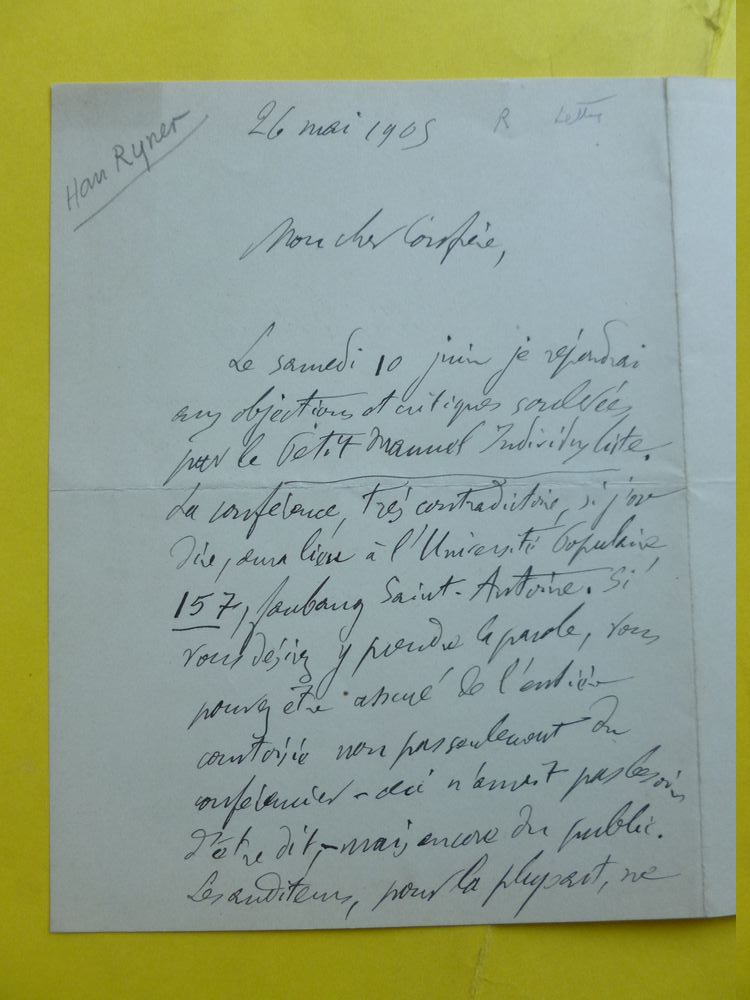 Han Ryner
26 mai 1905
R
Lettre
Mon cher Confrère,
Le samedi 10 juin je répondrai
aux objections et critiques soulevées
par le Petit Manuel Individualiste.
La conférence, très contradictoire, si j'ose
dire, aura lieu à l'Université Populaire
157, faubourg Saint-Antoine. Si
vous désirez y prendre la parole, vous
pouvez être assuré de l'entière
courtoisie non pas seulement du
conférencier - ceci n'aurait pas besoin
d'être dit, - mais encore du public.
Les auditeurs, pour la plupart, ne